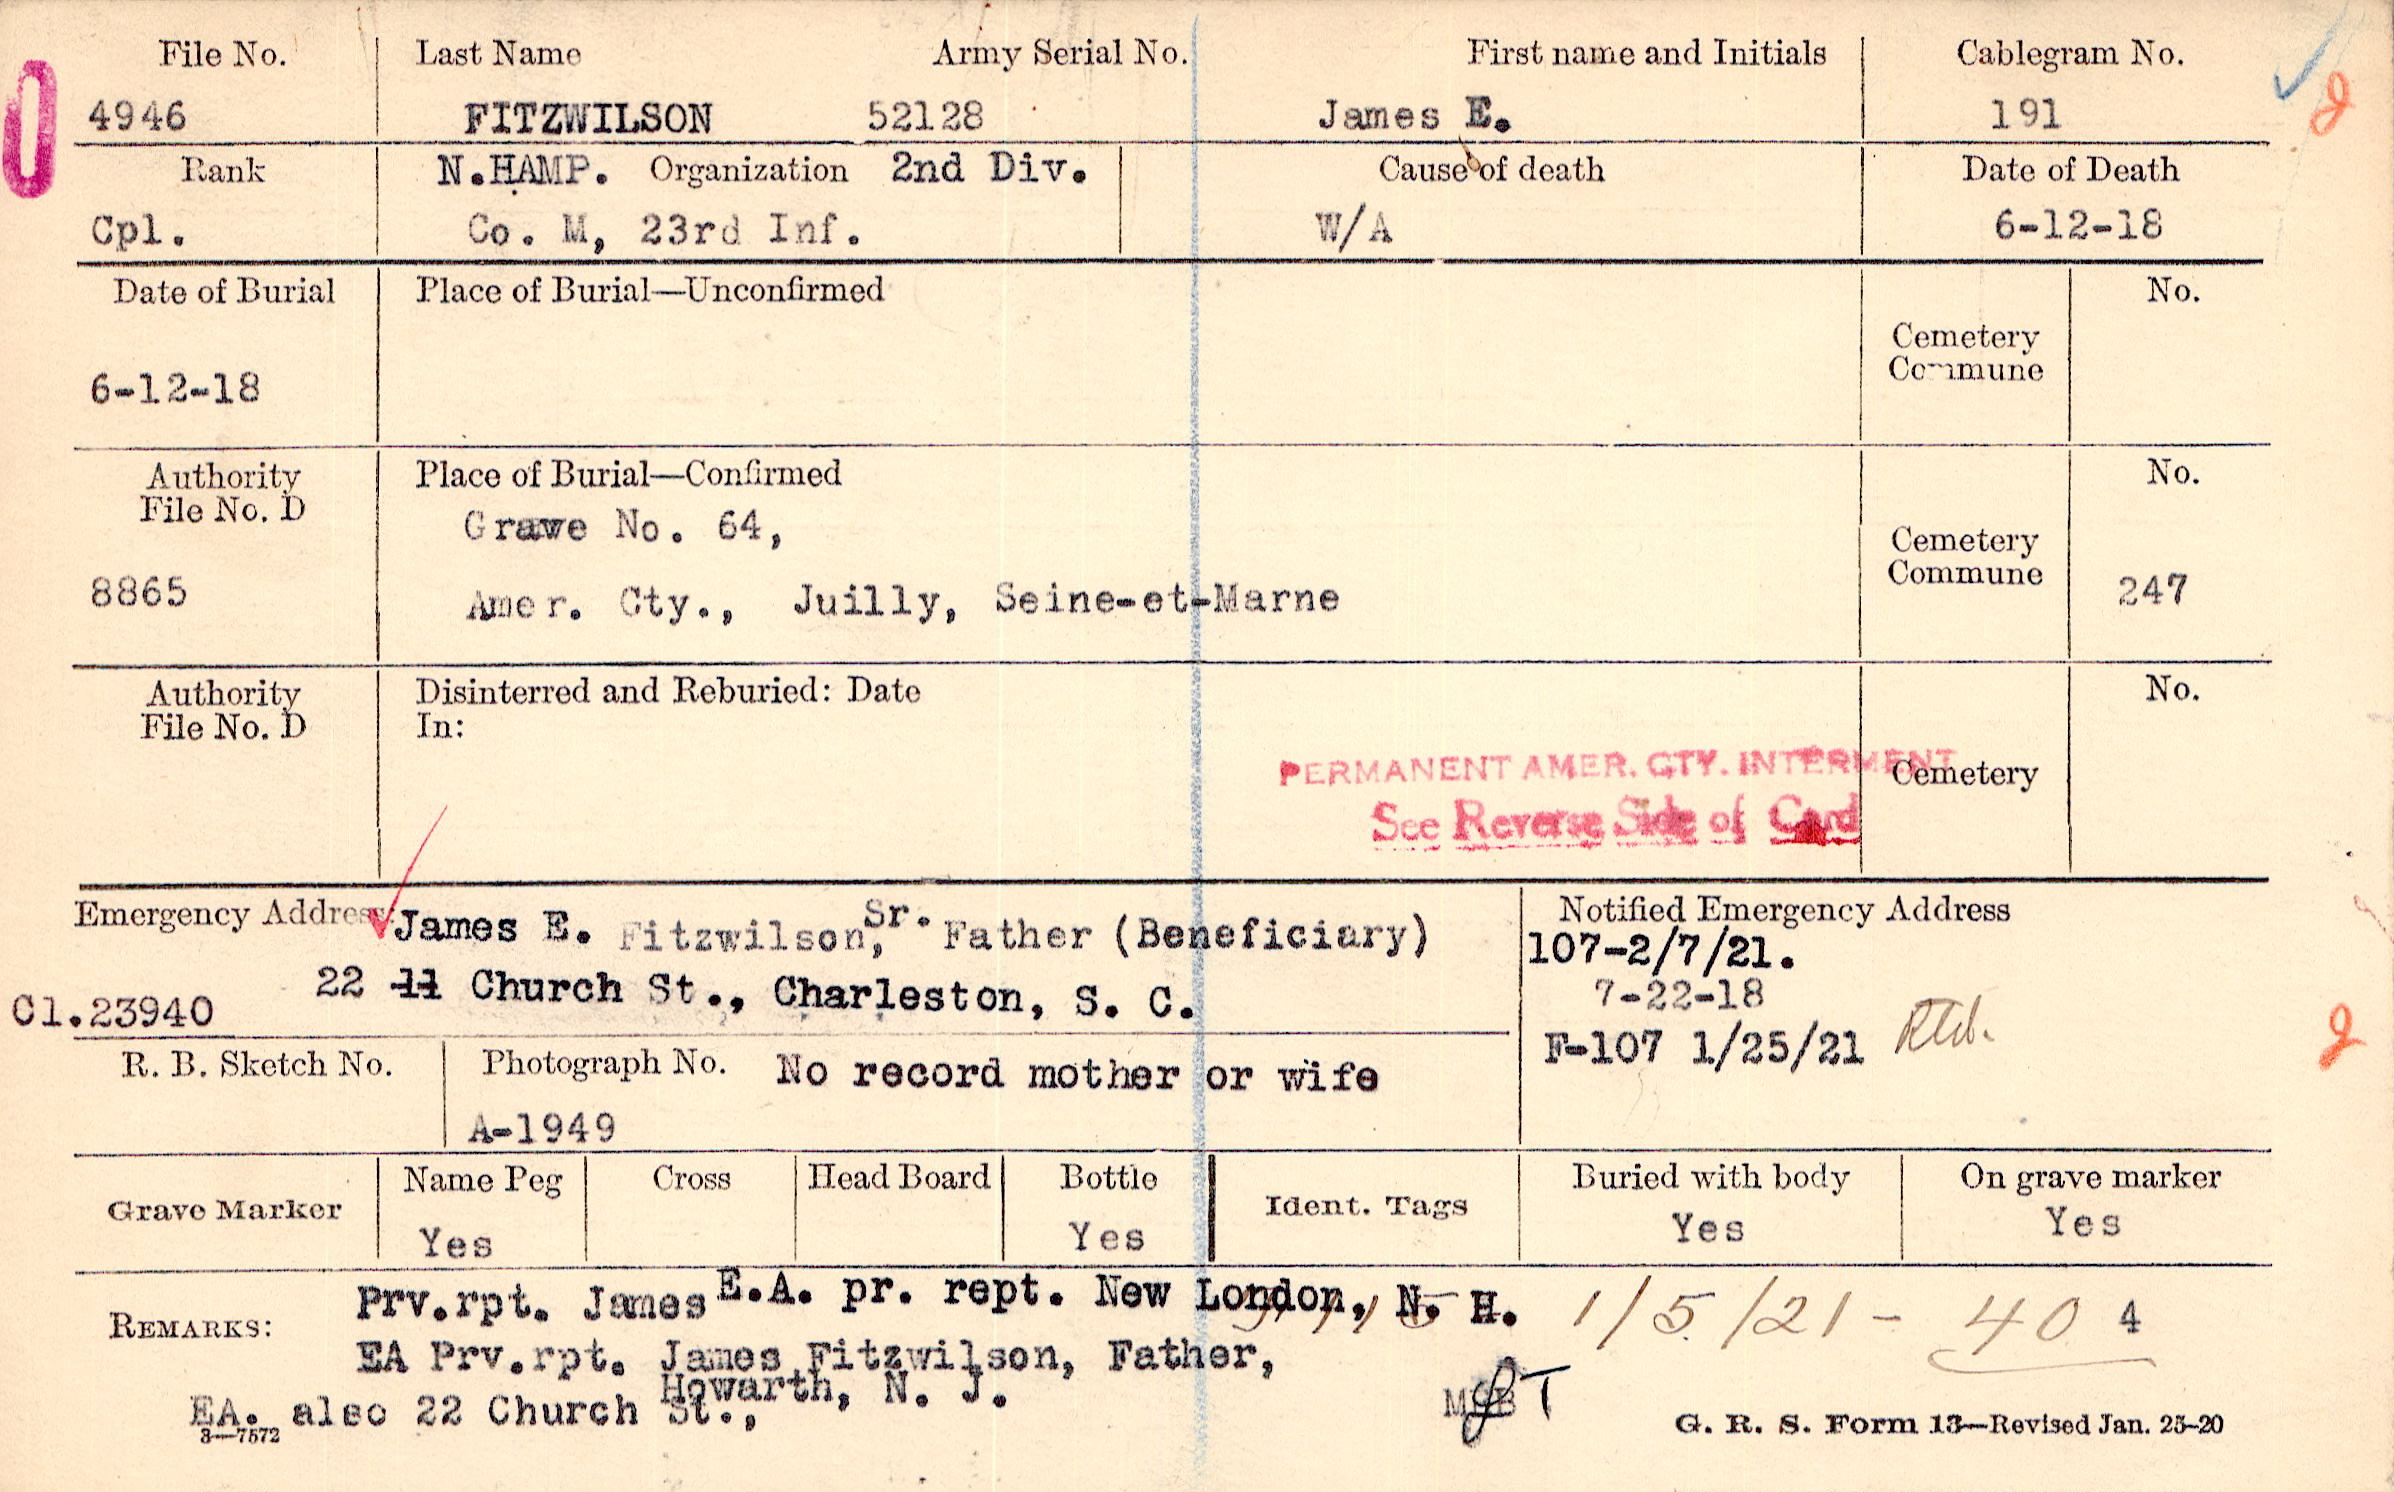 File No. Last Name Army Serial No. First name and Initials Cablegram No.
4946 FITZWILSON 52128 James E. 191
Rank N.HAMP. Organization 2nd Div. Cause of death Date of Death
Cpl. Co. M, 23rd Inf. W/A 6-12-18
Date of Burial Place of Burial—Unconfirmed No.
Cemetery
Commune
6-12-18
Authority Place of Burial—Confirmed No.
File No. D
Grave No. 64,
Cemetery
Commune
8865 Amer. Cty., Juilly, Seine-et-Marne 247
Authority Disinterred and Reburied: Date No.
File No. D In:
PERMANENT AMER. CTY. INTERMENT
Cemetery
See Reverse Side of Card
Emergency Address: James E. Fitzwilson, Sr. Father (Beneficiary) Notified Emergency Address
107-2/7/21.
22 11 Church St., Charleston, S. C. 7-22-18
Cl.23940
F-107 1/25/21
R. B. Sketch No. Photograph No. No record mother or wife
A-1949
Grave Marker Name Peg Cross Head Board Bottle Ident. Tags Buried with body On grave marker
Yes Yes Yes Yes
REMARKS: Prv.rpt. James E.A. pr. rept. New London, N. H. 1/5/21- 40 4
EA Prv.rpt. James Fitzwilson, Father,
Howarth, N. J.
EA. also 22 Church St.,
3—7572
G. R. S. Form 13—Revised Jan. 25-20